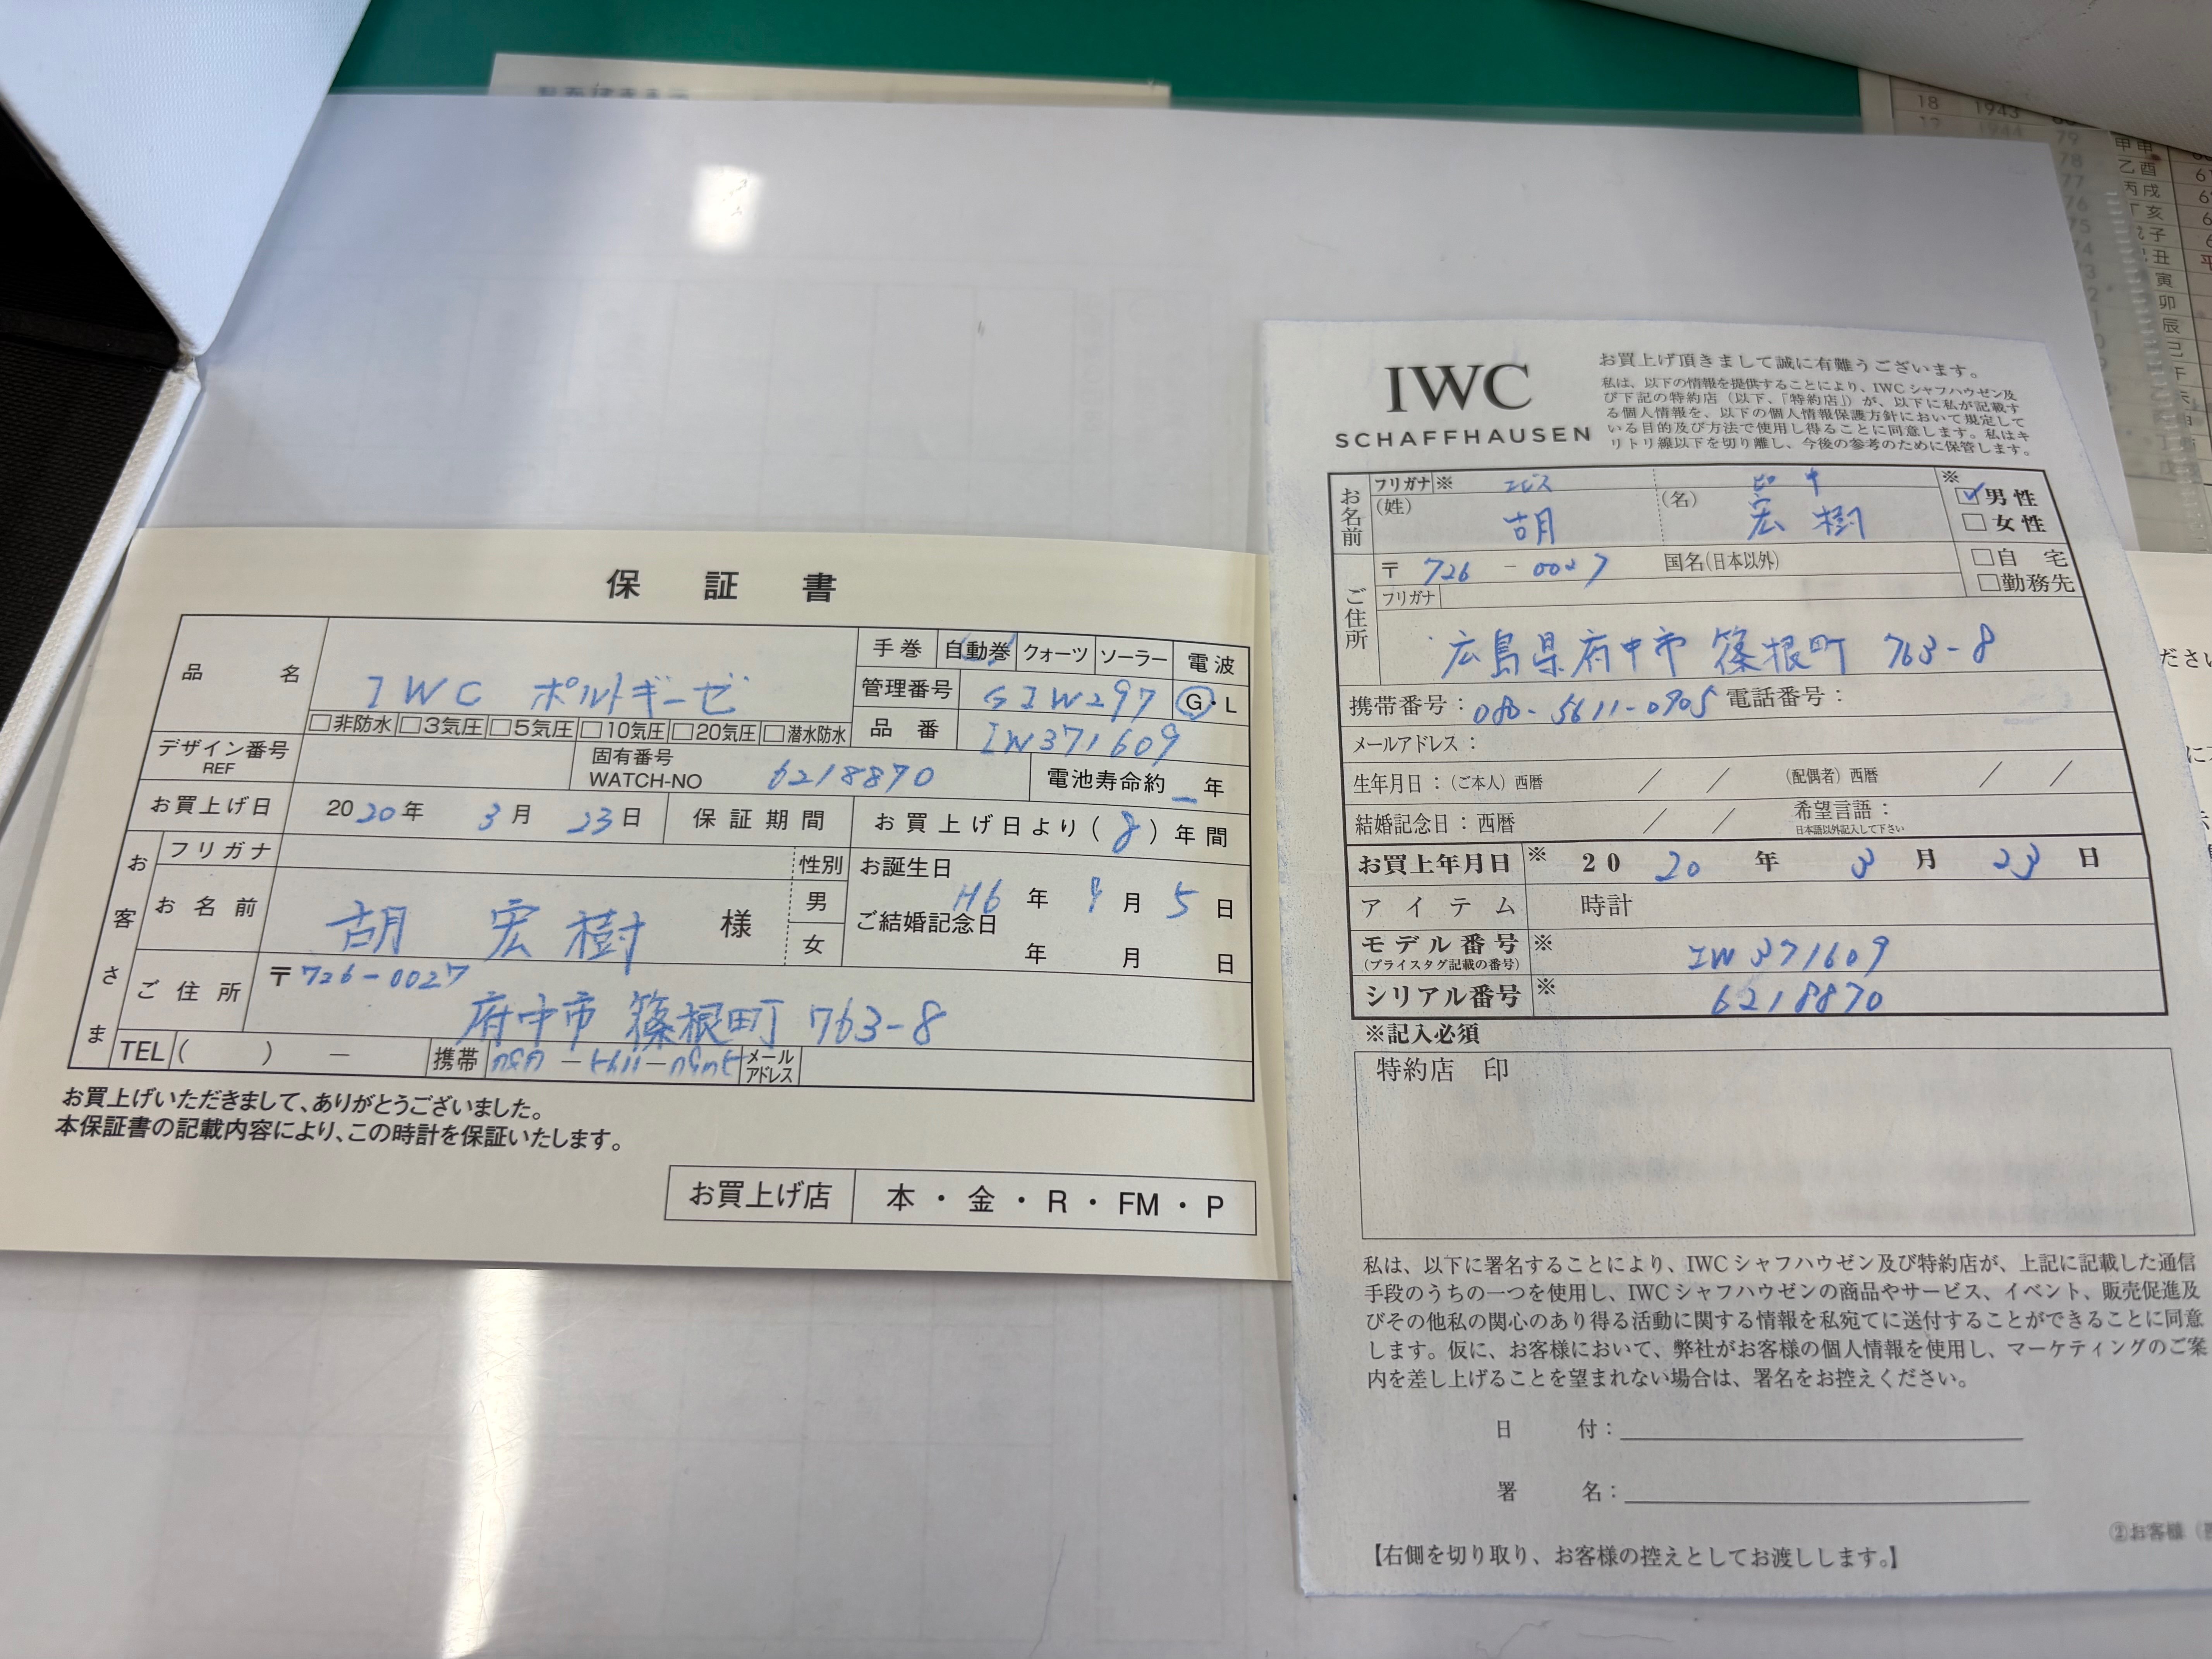 保証書
品名 IWC ポルトギーゼ
手巻 自動巻 クォーツ ソーラー 電波
管理番号 GIW297 G・L
□非防水 □3気圧 □5気圧 □10気圧 □20気圧 □潜水防水
品番 IW371609
デザイン番号 REF
固有番号 WATCH-NO 6218870
電池寿命約 — 年
お買上げ日 2020年 3月 23日
保証期間 お買上げ日より(8)年間
お客さま
フリガナ
性別 男 女
お名前 胡 宏樹 様
お誕生日 H6年 月 5日
ご結婚記念日 年 月 日
ご住所 〒726-0027
府中市 篠根町 763-8
TEL( ) —
携帯
メールアドレス
お買上げいただきまして、ありがとうございました。
本保証書の記載内容により、この時計を保証いたします。
お買上げ店 本・金・R・FM・P
IWC
SCHAFFHAUSEN
お買上げ頂きまして誠に有難うございます。
私は、以下の情報を提供することにより、IWCシャフハウゼン及
び下記の特約店(以下、「特約店」)が、以下に私が記載す
る個人情報を、以下の個人情報保護方針において規定して
いる目的及び方法で使用し得ることに同意します。私はキ
リトリ線以下を切り離し、今後の参考のために保管します。
お名前
フリガナ ※ エビス ヒロキ
(姓) 胡 (名) 宏樹
※ ☑男性
□女性
ご住所
〒 726-0027 国名(日本以外)
□自宅
□勤務先
フリガナ
広島県府中市 篠根町 763-8
携帯番号：080-5611-0905 電話番号：
メールアドレス：
生年月日：(ご本人)西暦 / / (配偶者)西暦 / /
結婚記念日：西暦 / / 希望言語：
日本語以外記入して下さい
お買上年月日 ※ 2020年 3月 23日
アイテム 時計
モデル番号 ※ IW371609
(プライスタグ記載の番号)
シリアル番号 ※ 6218870
※記入必須
特約店 印
私は、以下に署名することにより、IWCシャフハウゼン及び特約店が、上記に記載した通信
手段のうちの一つを使用し、IWCシャフハウゼンの商品やサービス、イベント、販売促進及
びその他私の関心のあり得る活動に関する情報を私宛てに送付することができることに同意
します。仮に、お客様において、弊社がお客様の個人情報を使用し、マーケティングのご案
内を差し上げることを望まれない場合は、署名をお控えください。
日付：
署名：
【右側を切り取り、お客様の控えとしてお渡しします。】
①お客様
18 1943
1944 79
78
77
甲申
乙酉
丙戌
亥
子
丑
寅
卯
辰